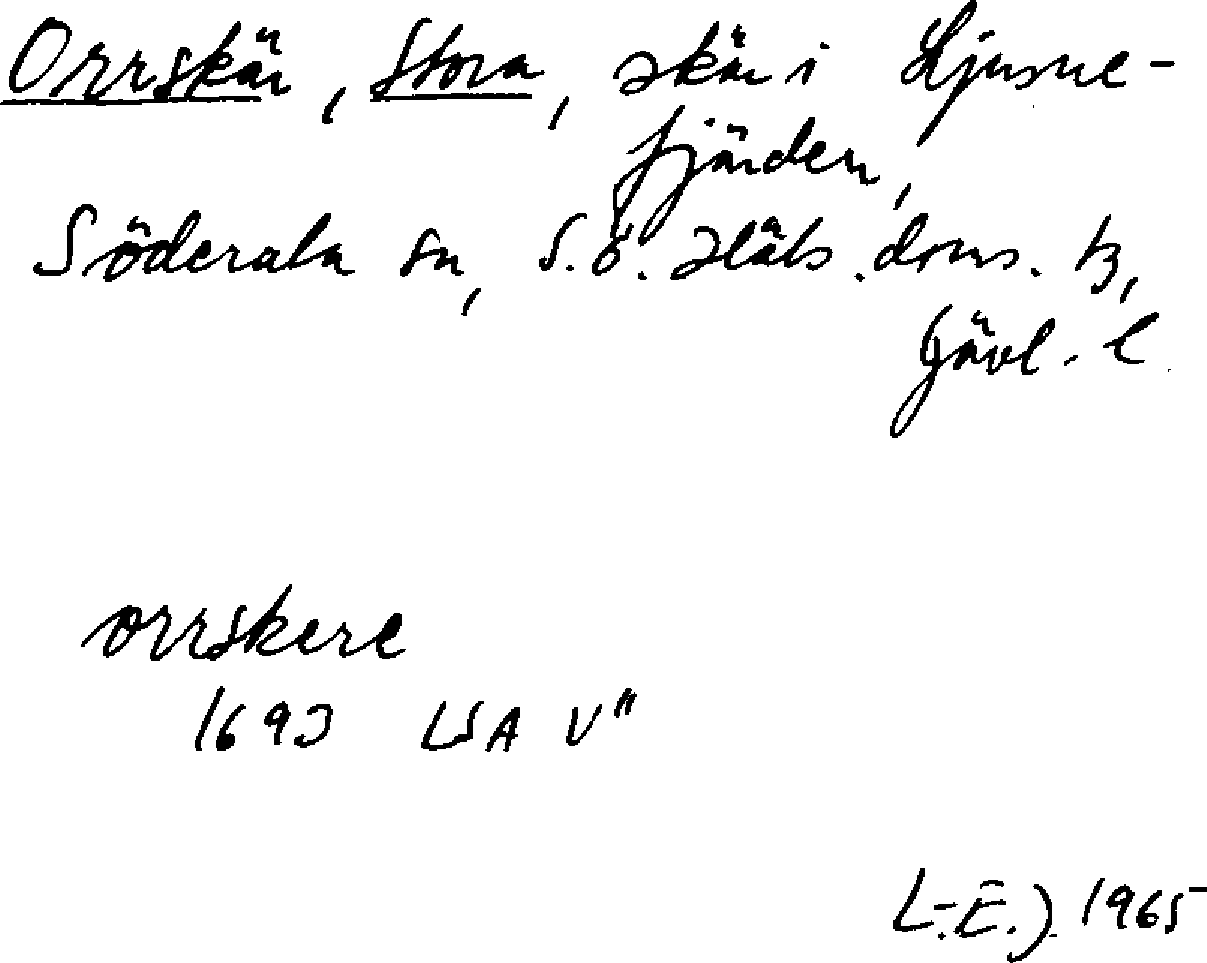 Orrskär, Stora, skär i Ljusne-
fjärden,
Söderala sn, S.ö. Häls. doms. tz,
Gävl. l.
orrskere
1693 LSA V"
L.-E. J. 1965